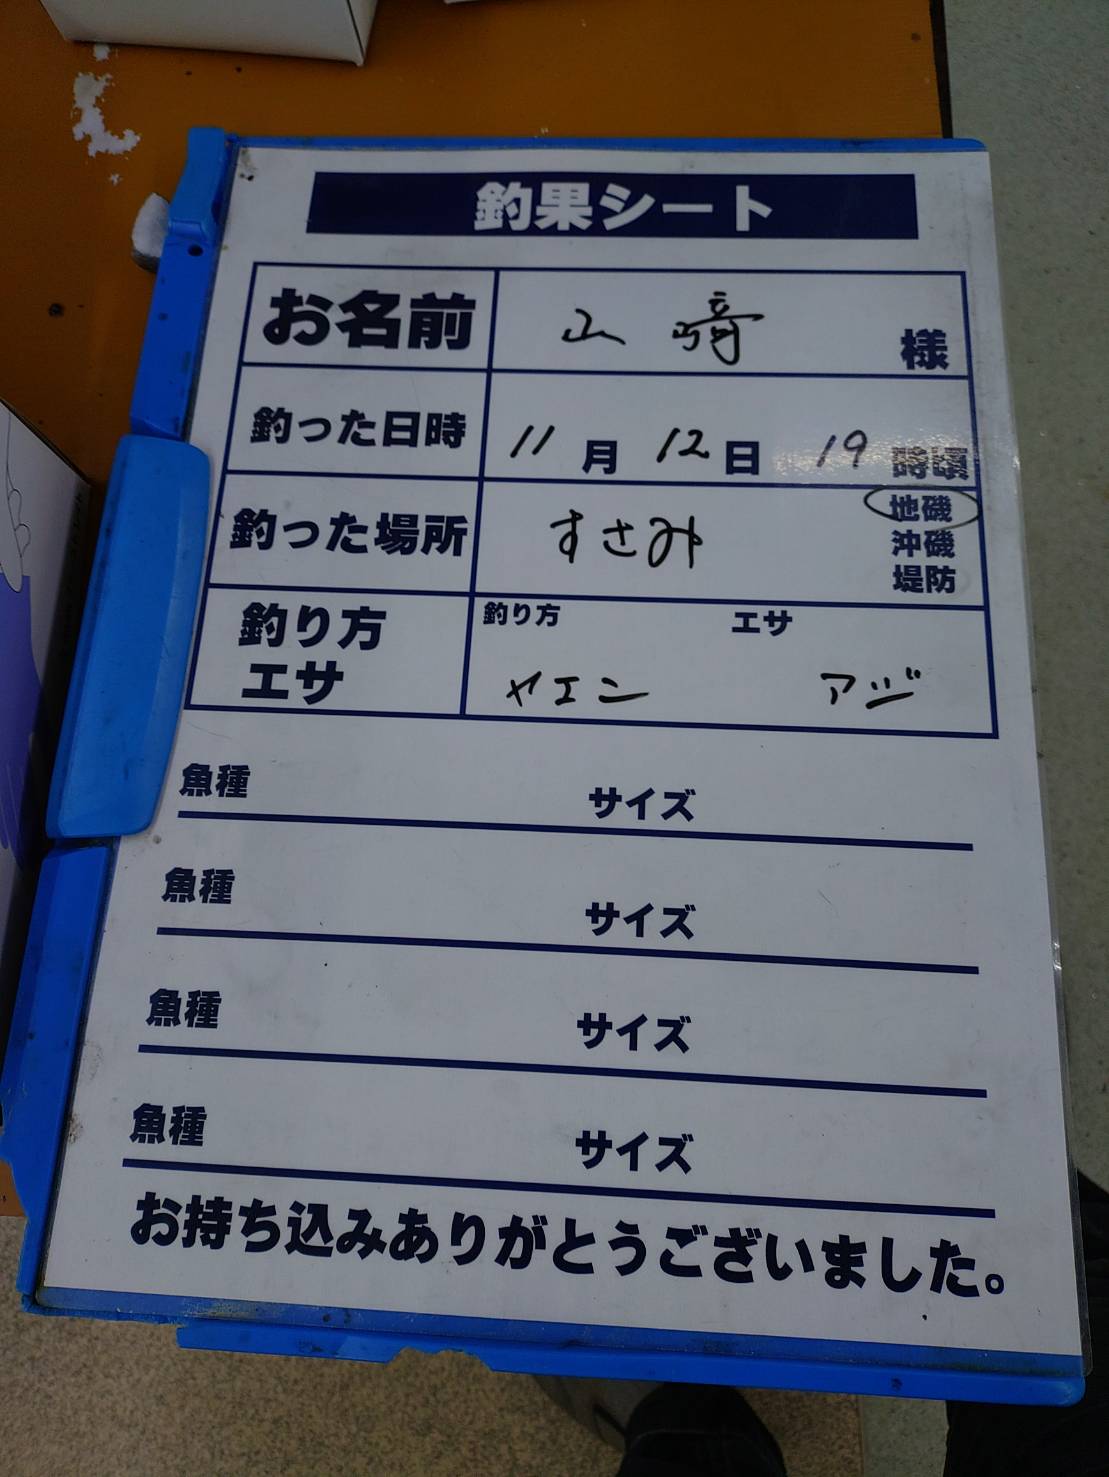 釣果シート
お名前 山﨑 様
釣った日時 11月12日 19時頃
釣った場所 すさみ 地磯
沖磯
堤防
釣り方 エサ
釣り方
エサ
ヤエン アジ
魚種 サイズ
魚種 サイズ
魚種 サイズ
魚種 サイズ
お持ち込みありがとうございました。